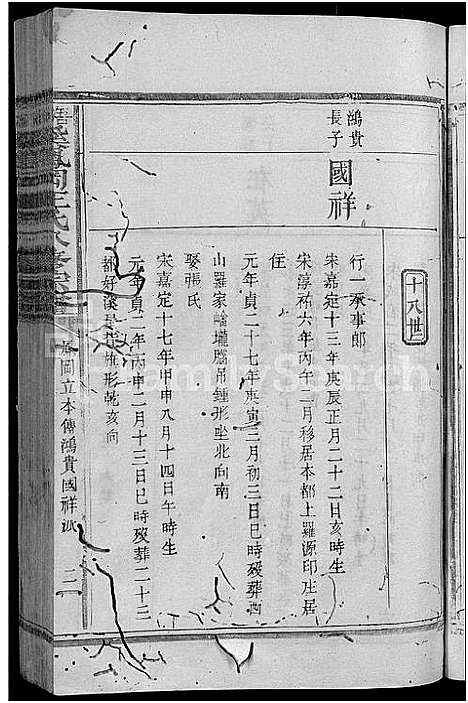 十八世
鴻貴長子
國祥
行一承事郎
宋嘉定十三年庚辰正月二十二日亥時生
宋淳祐六年丙午二月移居本都上羅源印庄居
住
元年貞二十七年庚寅三月初三日巳時歿葬西
山羅家畬壠勝吊鍾形坐北向南
娶張氏
宋嘉定十七年甲申八月十四日午時生
元年貞二年丙申二月十三日巳時歿葬二十三
都好溪 形乾亥向
岡立本傳鴻貴國祥派
二
FamilySearch